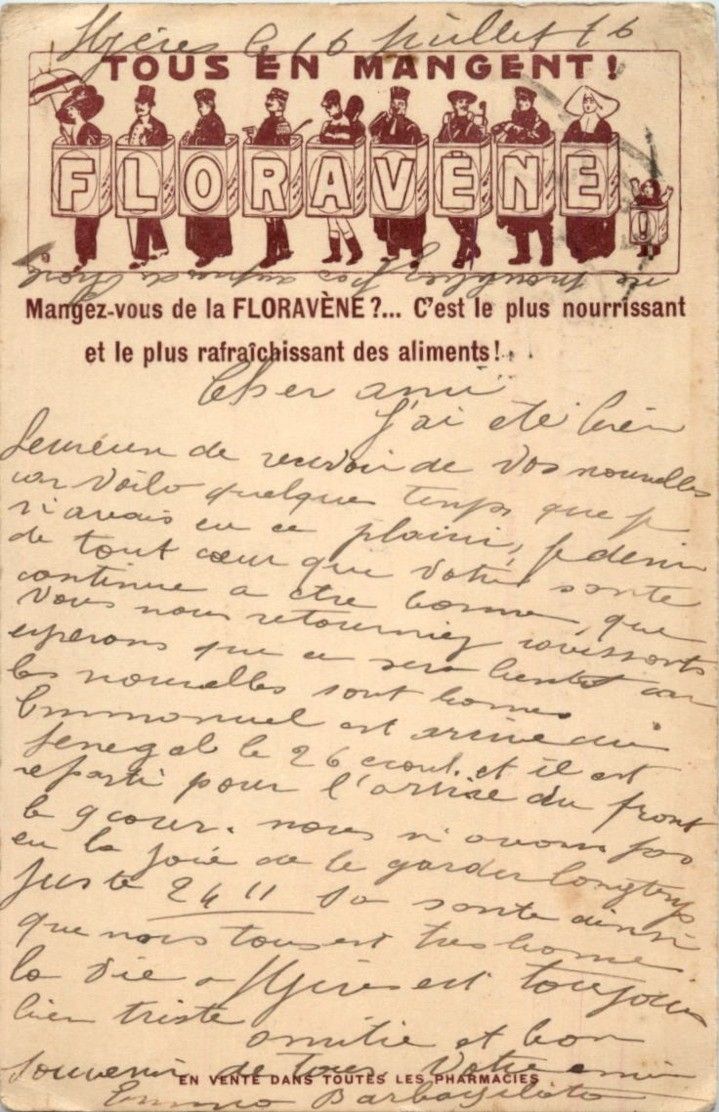 Hyères le 16 Juillet 16
TOUS EN MANGENT!
FLORAVÈNE!
ne pas
Mangez-vous de la FLORAVÈNE?... C'est le plus nourrissant
et le plus rafraîchissant des aliments!
Cher ami
J'ai eté bien
heureux de recevoir de vos nouvelles
car voilo quelque temps que je
n'avais eu ce plaisir, je desire
de tout cœur que votre sante
continue a etre bonne, que
vous nous retourniez
esperons que ce sera bientot car
les nouvelles sont bonnes
Emmanuel est arrivé du
Senegal le 26 et il est
reparti pour l' du front
le 9 cour. nous n'avons pas
eu la joie de le garder longtemps
juste 24 H sa sante ainsi
que nous tous est tres bonne
la vie a Hyères est toujours
bien triste
amitie et bon
souvenir de tous. Votre ami
EN VENTE DANS TOUTES LES PHARMACIES